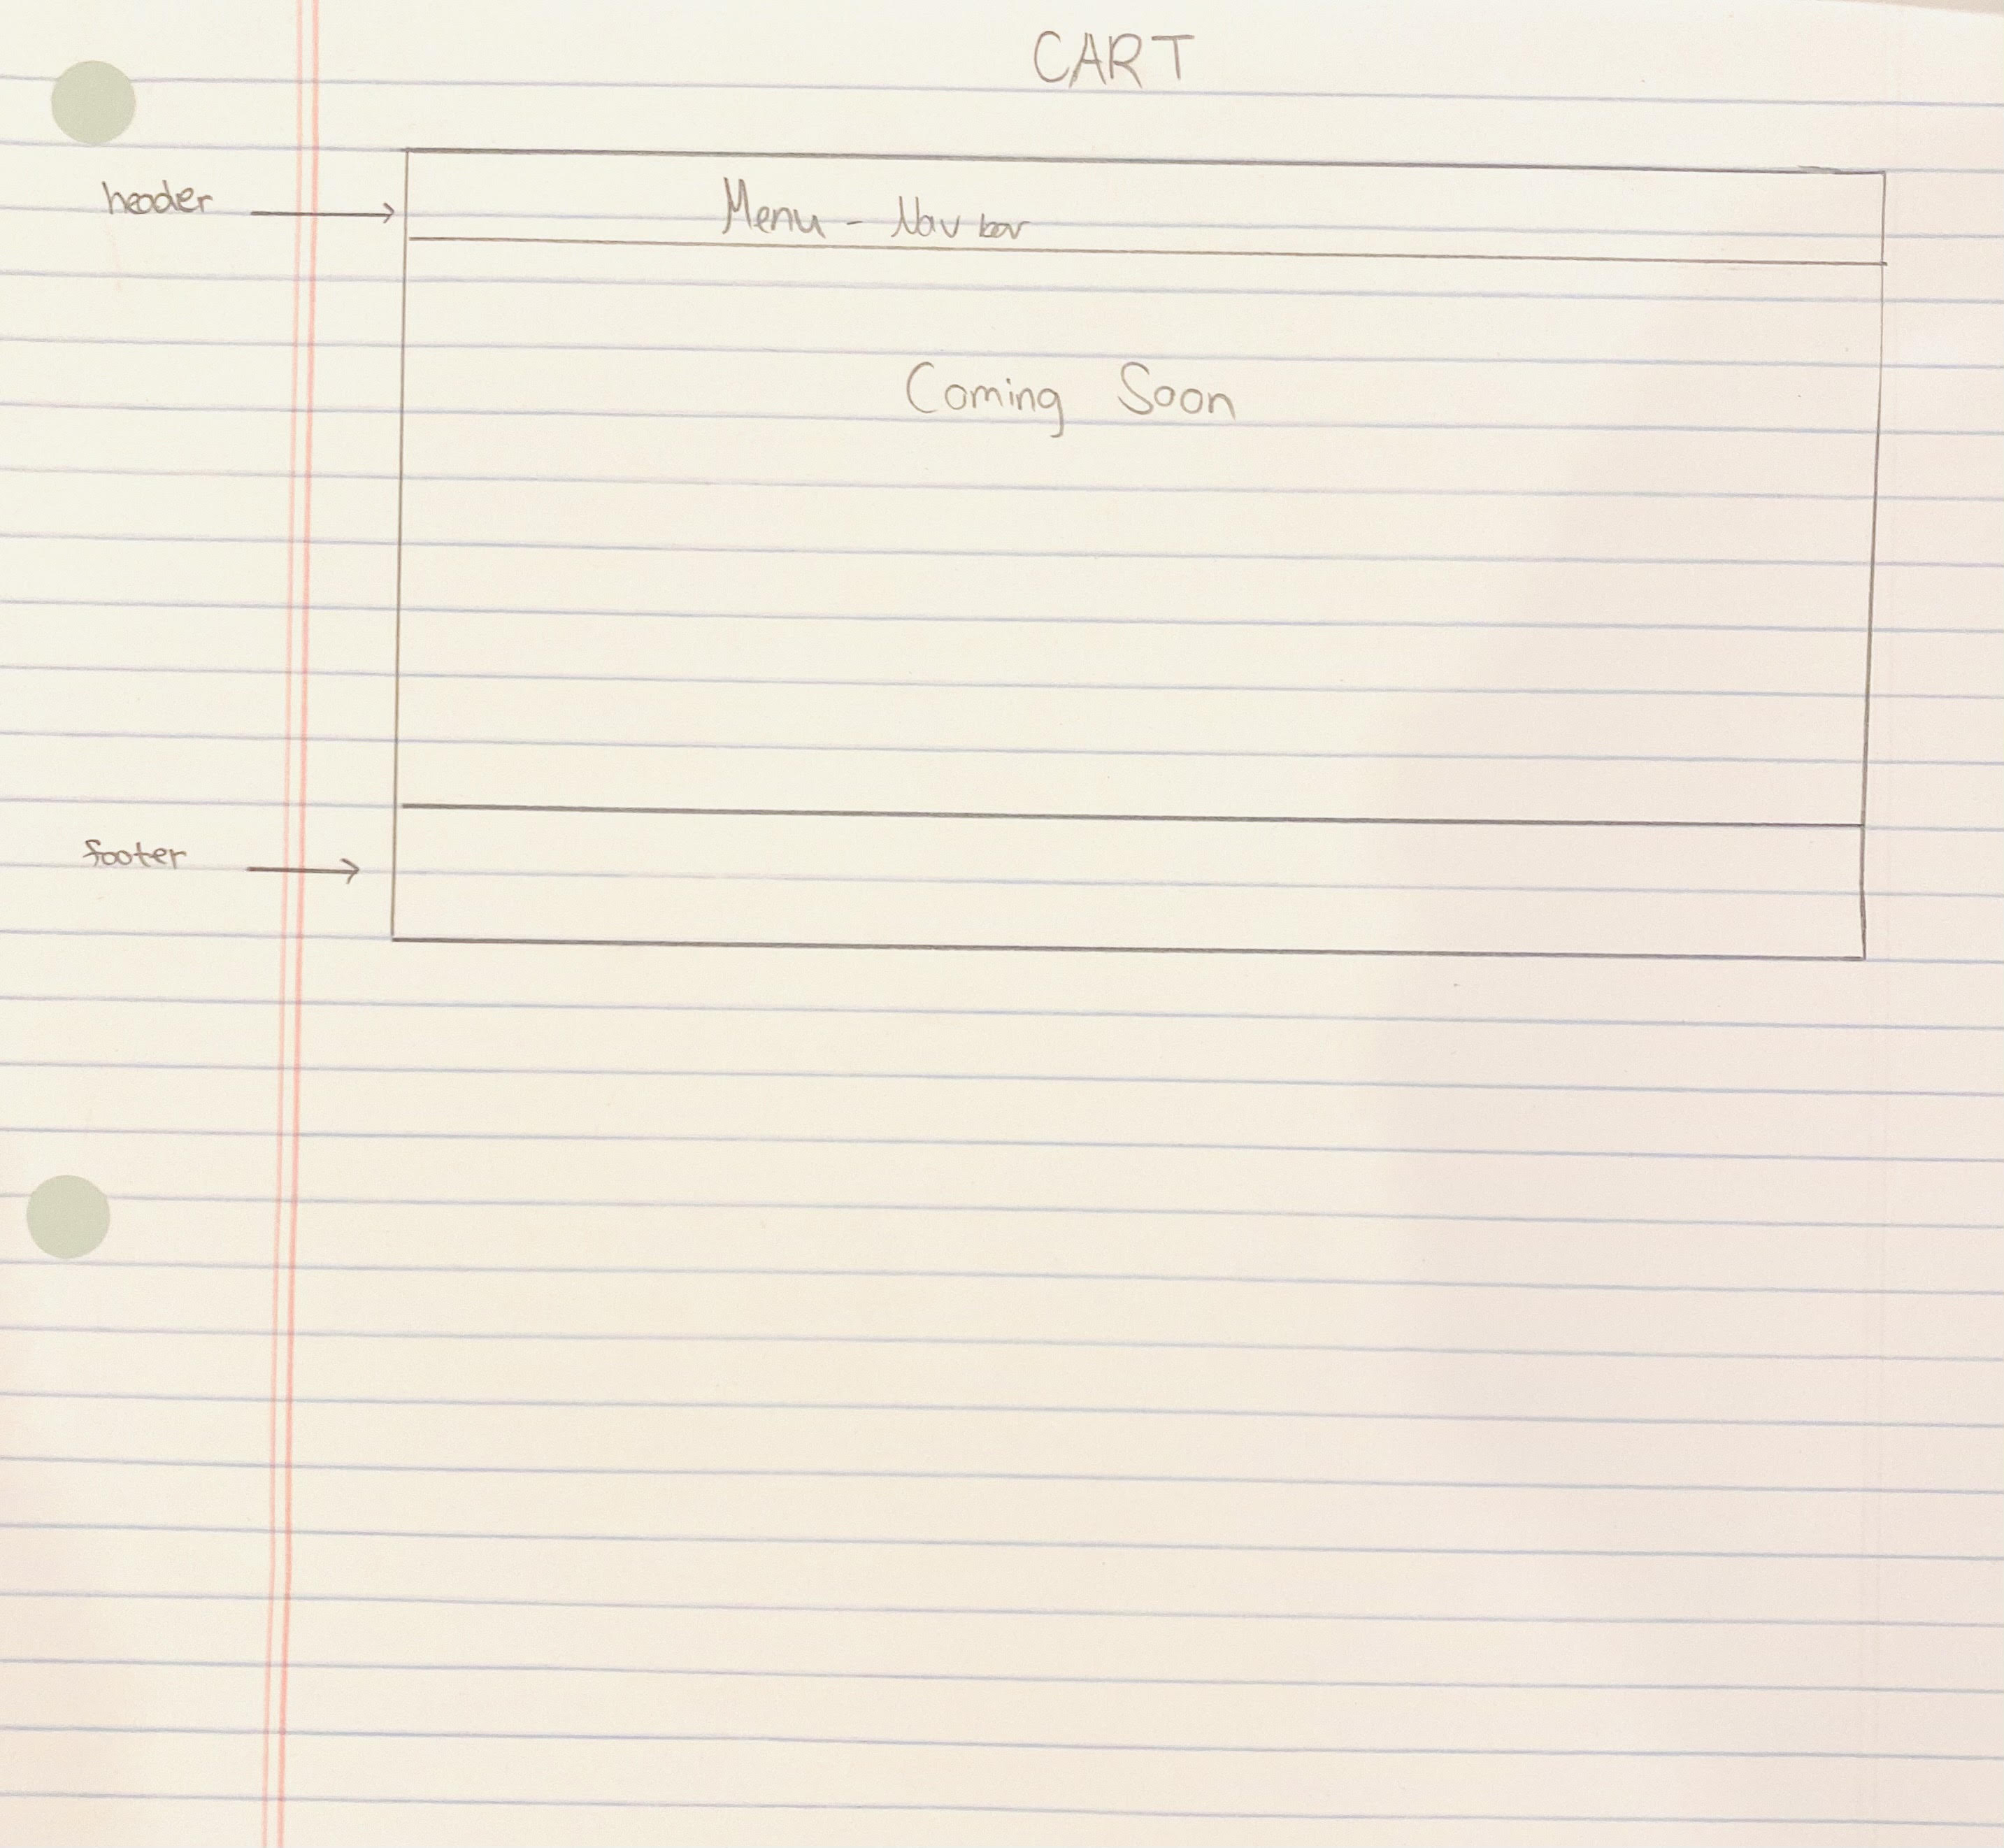 CART
header
Menu - Nav bar
Coming Soon
footer